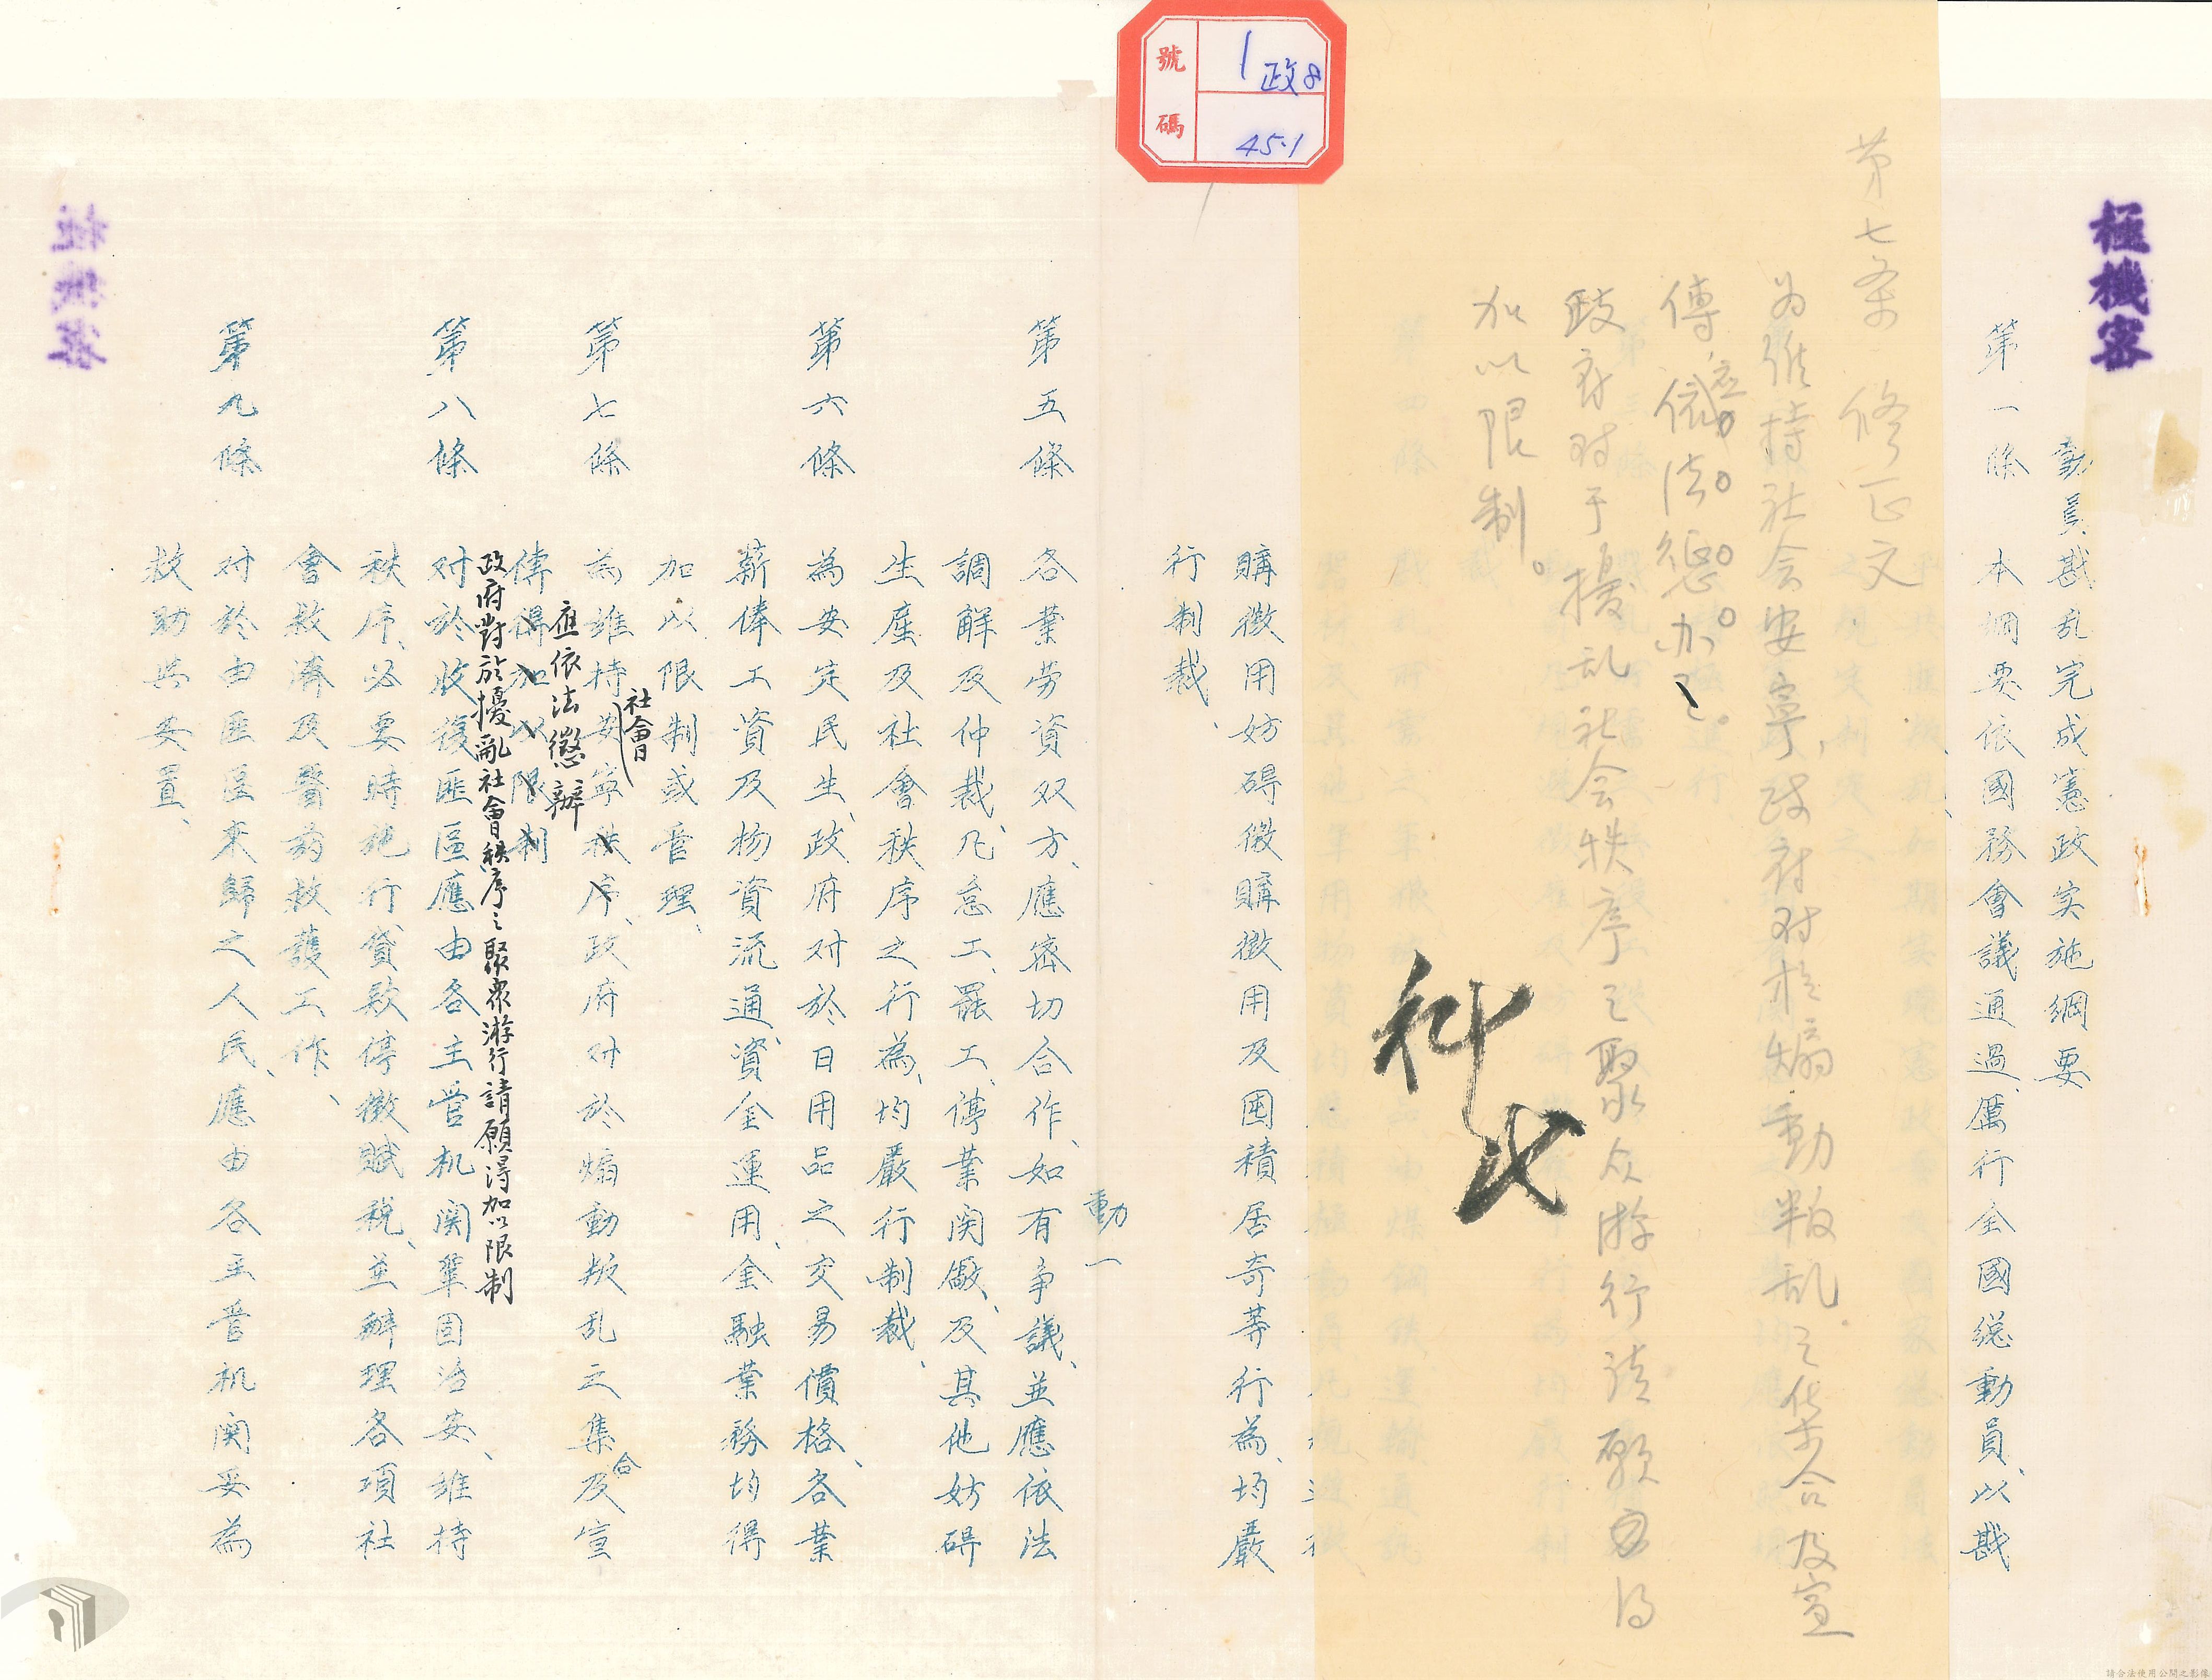 極機密
動員戡乱完成憲政实施綱要
第一條 本綱要依國務會議通過、厲行全國総動員、以戡
第七条 修正文
为維持社会安寧,政府对於煽動叛乱之集合及宣
傳應依法懲办之。
政府对于擾乱社会秩序之聚众游行請願得
加以限制。
號碼
1 政8
45.1
購徵用妨碍徵購徵用及囤積居奇等行為、均嚴
行制裁、
動一
第五條 各業劳資双方、應密切合作、如有爭議、並應依法
調解及仲裁、凡怠工、罷工、停業関廠、及其他妨碍
生產及社會秩序之行為、均嚴行制裁、
第六條 為安定民生、政府对於日用品之交易價格、各業
薪俸工資及物資流通、資金運用、金融業務均得
加以限制或管理、
第七條 為維持安寧秩序、政府对於煽動叛乱之集合及宣
社會
傳得加以限制
應依法懲辦
政府對於擾亂社會秩序之聚衆游行請願得加以限制
第八條 对於收復匪區應由各主管机関鞏固治安、維持
秩序、必要時施行貸款停徵賦稅、並辦理各項社
會救濟及醫葯救護工作、
第九條 对於由匪區來歸之人民、應由各主管机関妥為
救助与安置、
極機密
請合法使用公開之影像